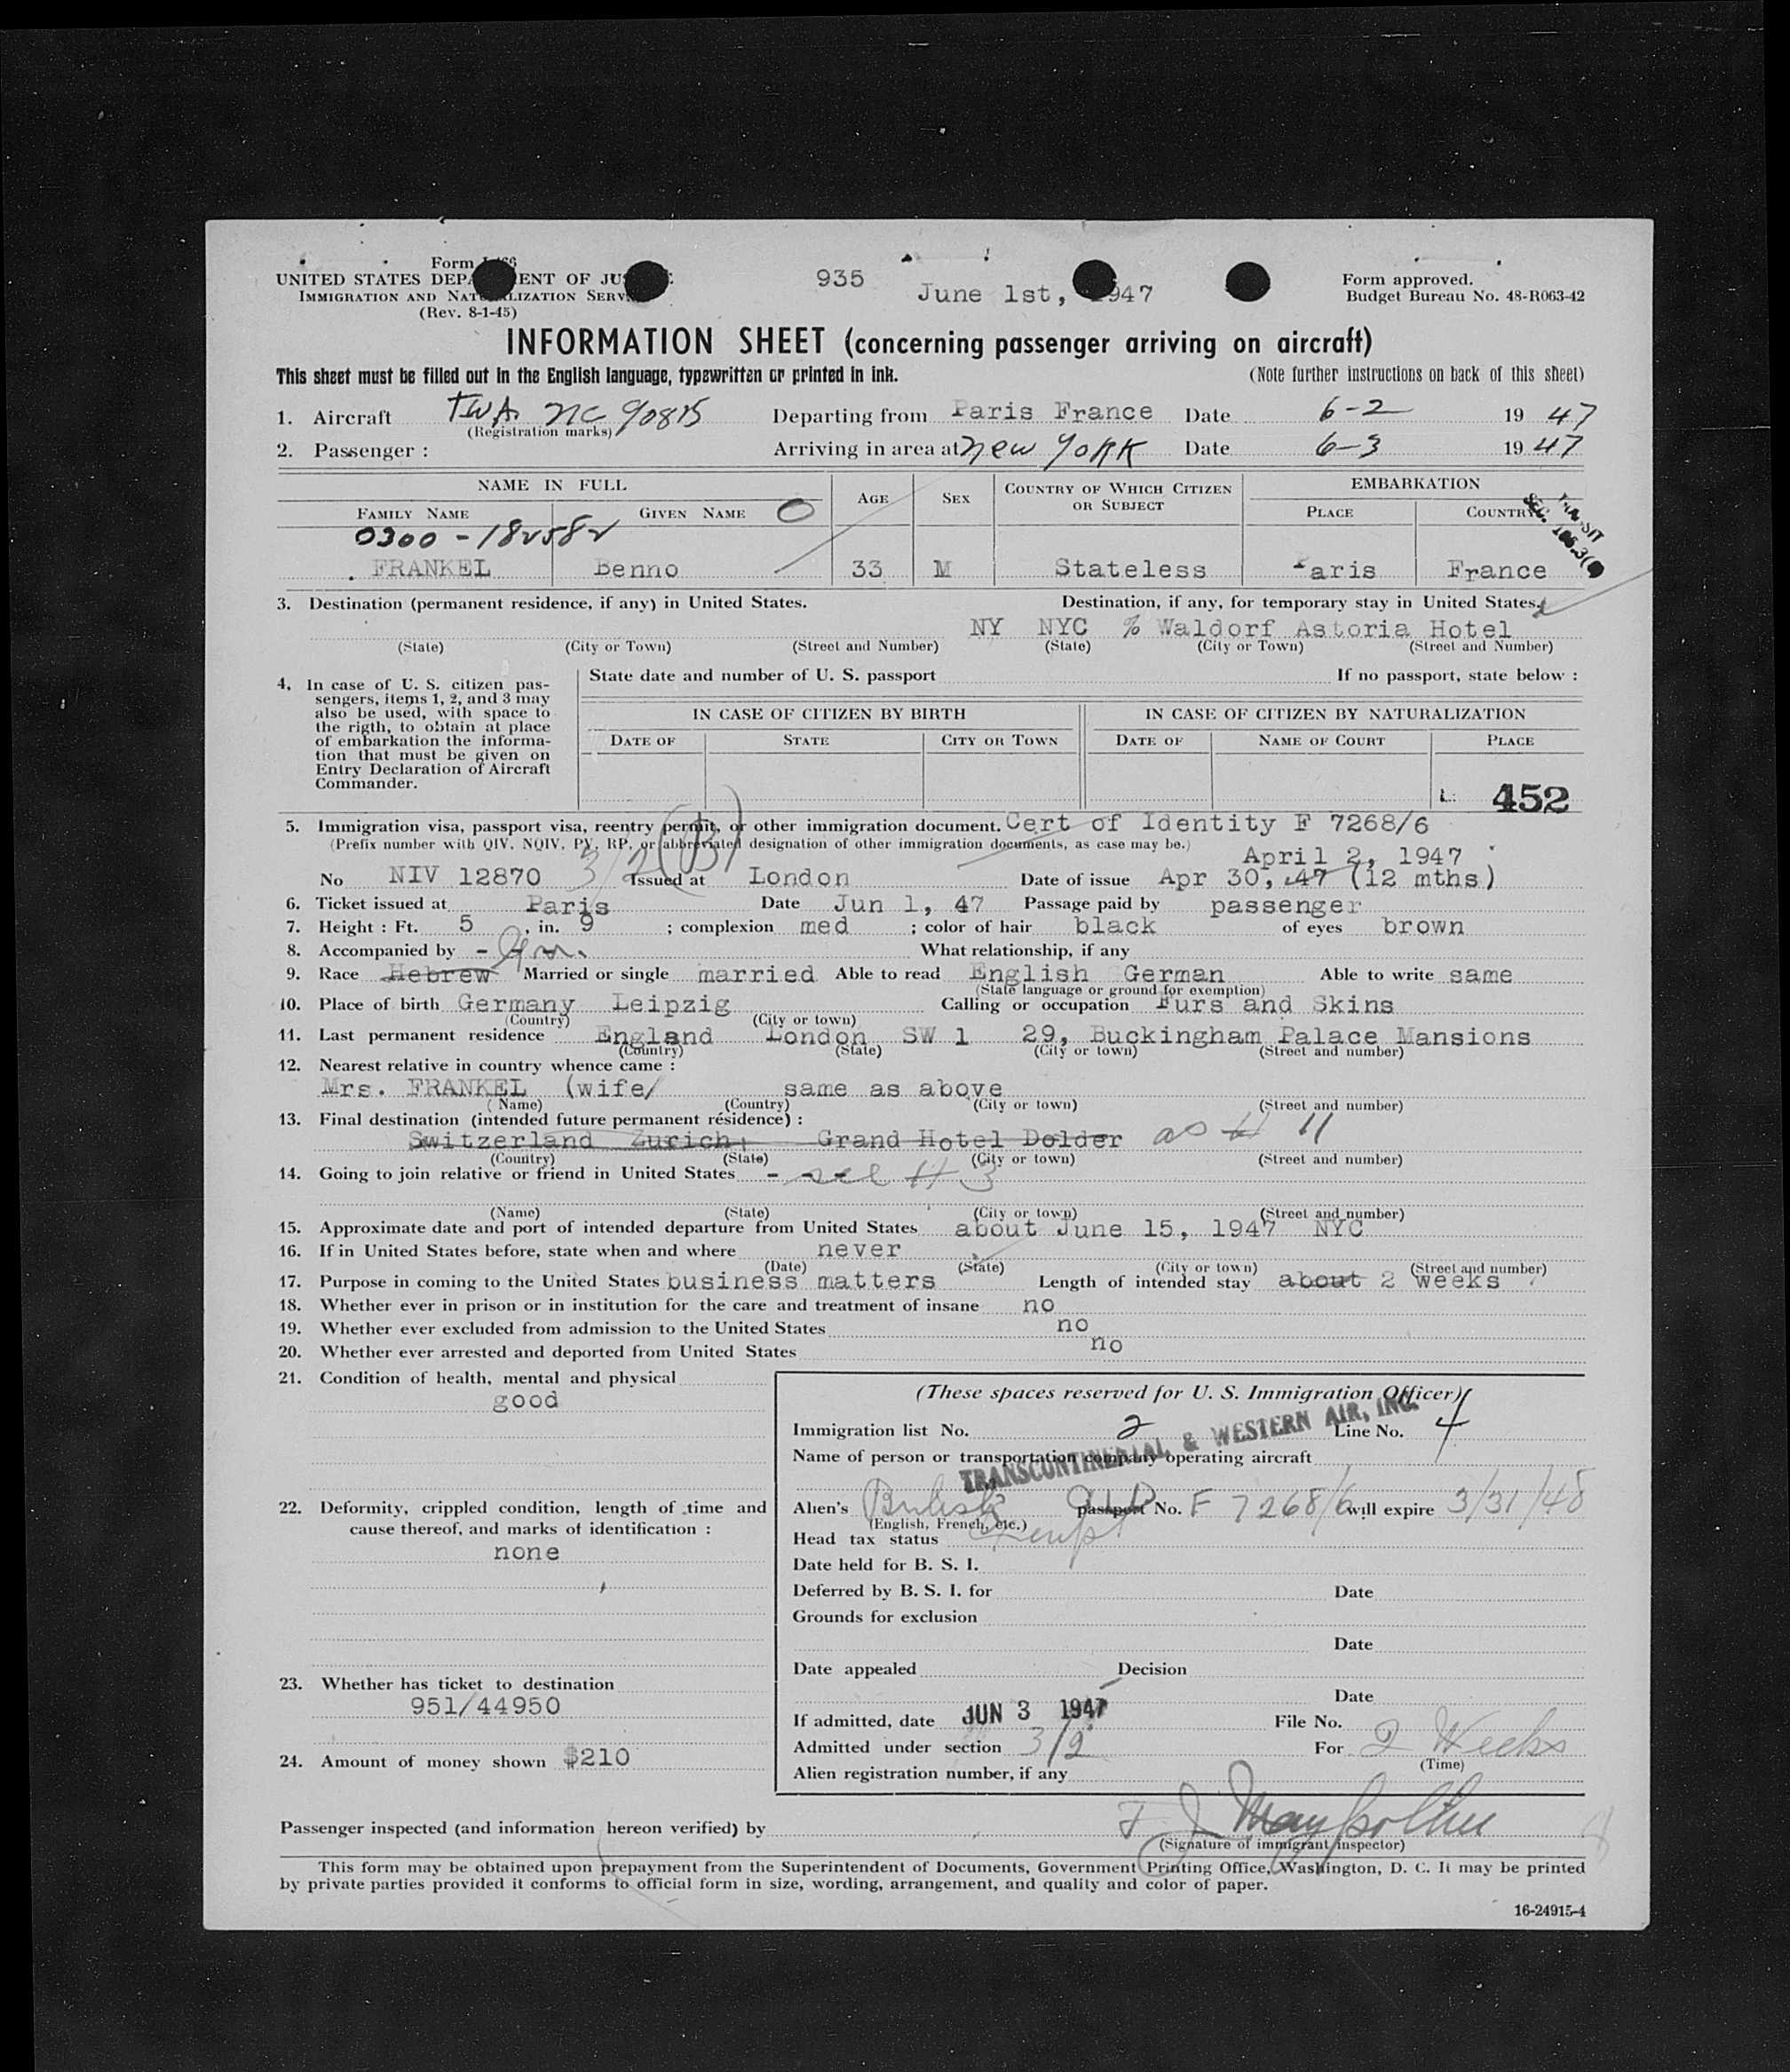 Form I-466
UNITED STATES DEPARTMENT OF JUSTICE
IMMIGRATION AND NATURALIZATION SERVICE
(Rev. 8-1-45)
935
June 1st, 1947
Form approved.
Budget Bureau No. 48-R063-42
INFORMATION SHEET (concerning passenger arriving on aircraft)
This sheet must be filled out in the English language, typewritten or printed in ink. (Note further instructions on back of this sheet)
1. Aircraft TWA NC 90815 Departing from Paris France Date 6-2 19 47
(Registration marks)
2. Passenger : Arriving in area at New York Date 6-3 19 47
NAME IN FULL AGE SEX COUNTRY OF WHICH CITIZEN OR SUBJECT EMBARKATION
FAMILY NAME GIVEN NAME PLACE COUNTRY
0300-182582
FRANKEL Benno 33 M Stateless Paris France
3. Destination (permanent residence, if any) in United States. Destination, if any, for temporary stay in United States.
NY NYC % Waldorf Astoria Hotel
(State) (City or Town) (Street and Number) (State) (City or Town) (Street and Number)
4. In case of U. S. citizen pas-
sengers, items 1, 2, and 3 may
also be used, with space to
the rigth, to obtain at place
of embarkation the informa-
tion that must be given on
Entry Declaration of Aircraft
Commander.
State date and number of U. S. passport If no passport, state below :
IN CASE OF CITIZEN BY BIRTH IN CASE OF CITIZEN BY NATURALIZATION
DATE OF STATE CITY OR TOWN DATE OF NAME OF COURT PLACE
452
5. Immigration visa, passport visa, reentry permit, or other immigration document. Cert of Identity F 7268/6
(Prefix number with QIV, NQIV, PV, RP, or abbreviated designation of other immigration documents, as case may be.)
3/2 (B)
April 2, 1947
No NIV 12870 Issued at London Date of issue Apr 30, 47 (12 mths)
6. Ticket issued at Paris Date Jun 1, 47 Passage paid by passenger
7. Height : Ft. 5 , in. 9 ; complexion med ; color of hair black of eyes brown
8. Accompanied by - What relationship, if any
9. Race Hebrew Married or single married Able to read English German Able to write same
(State language or ground for exemption)
10. Place of birth Germany Leipzig Calling or occupation Furs and Skins
(Country) (City or town)
11. Last permanent residence England London SW 1 29, Buckingham Palace Mansions
(Country) (State) (City or town) (Street and number)
12. Nearest relative in country whence came :
Mrs. FRANKEL (wife/ same as above
(Name) (Country) (City or town) (Street and number)
13. Final destination (intended future permanent résidence) :
Switzerland Zurich, Grand Hotel Dolder as # 11
(Country) (State) (City or town) (Street and number)
14. Going to join relative or friend in United States - see # 3
(Name) (State) (City or town) (Street and number)
15. Approximate date and port of intended departure from United States about June 15, 1947 NYC
16. If in United States before, state when and where never
(Date) (State) (City or town) (Street and number)
17. Purpose in coming to the United States business matters Length of intended stay about 2 weeks
18. Whether ever in prison or in institution for the care and treatment of insane no
19. Whether ever excluded from admission to the United States no
20. Whether ever arrested and deported from United States no
21. Condition of health, mental and physical
good
22. Deformity, crippled condition, length of time and
cause thereof, and marks of identification :
none
23. Whether has ticket to destination
951/44950
24. Amount of money shown $210
(These spaces reserved for U. S. Immigration Officer)
Immigration list No. 2 Line No. 4
Name of person or transportation company operating aircraft
TRANSCONTINENTAL & WESTERN AIR, INC.
Alien's British passport No. F 7268/6 will expire 3/31/48
(English, French, etc.)
Head tax status Exempt
Date held for B. S. I.
Deferred by B. S. I. for Date
Grounds for exclusion
Date
Date appealed Decision
Date
If admitted, date JUN 3 1947 File No.
Admitted under section 3/2 For 2 Weeks
(Time)
Alien registration number, if any
Passenger inspected (and information hereon verified) by
(Signature of immigrant inspector)
This form may be obtained upon prepayment from the Superintendent of Documents, Government Printing Office, Washington, D. C. It may be printed
by private parties provided it conforms to official form in size, wording, arrangement, and quality and color of paper.
16-24915-4